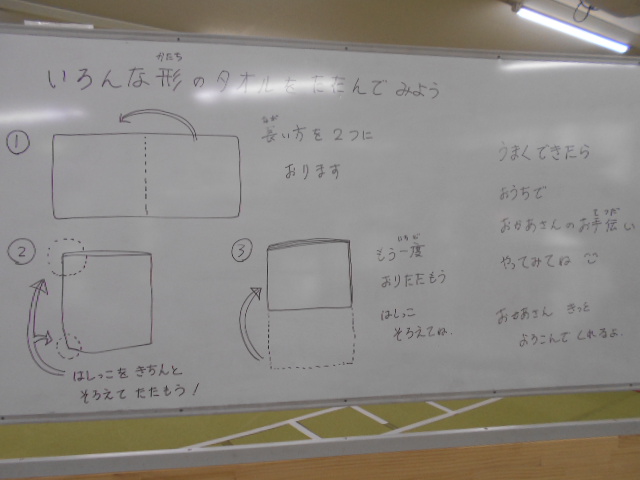 いろんな形のタオルをたたんでみよう
かたち
①
長い方を2つに
なが
おります
②
はしっこをきちんと
そろえてたたもう!
③
もう一度
いちど
おりたたもう
はしっこ
そろえてね。
うまくできたら
おうちで
おかあさんのお手伝い
てつだ
やってみてね
おかあさん きっと
ようこんでくれるよ。